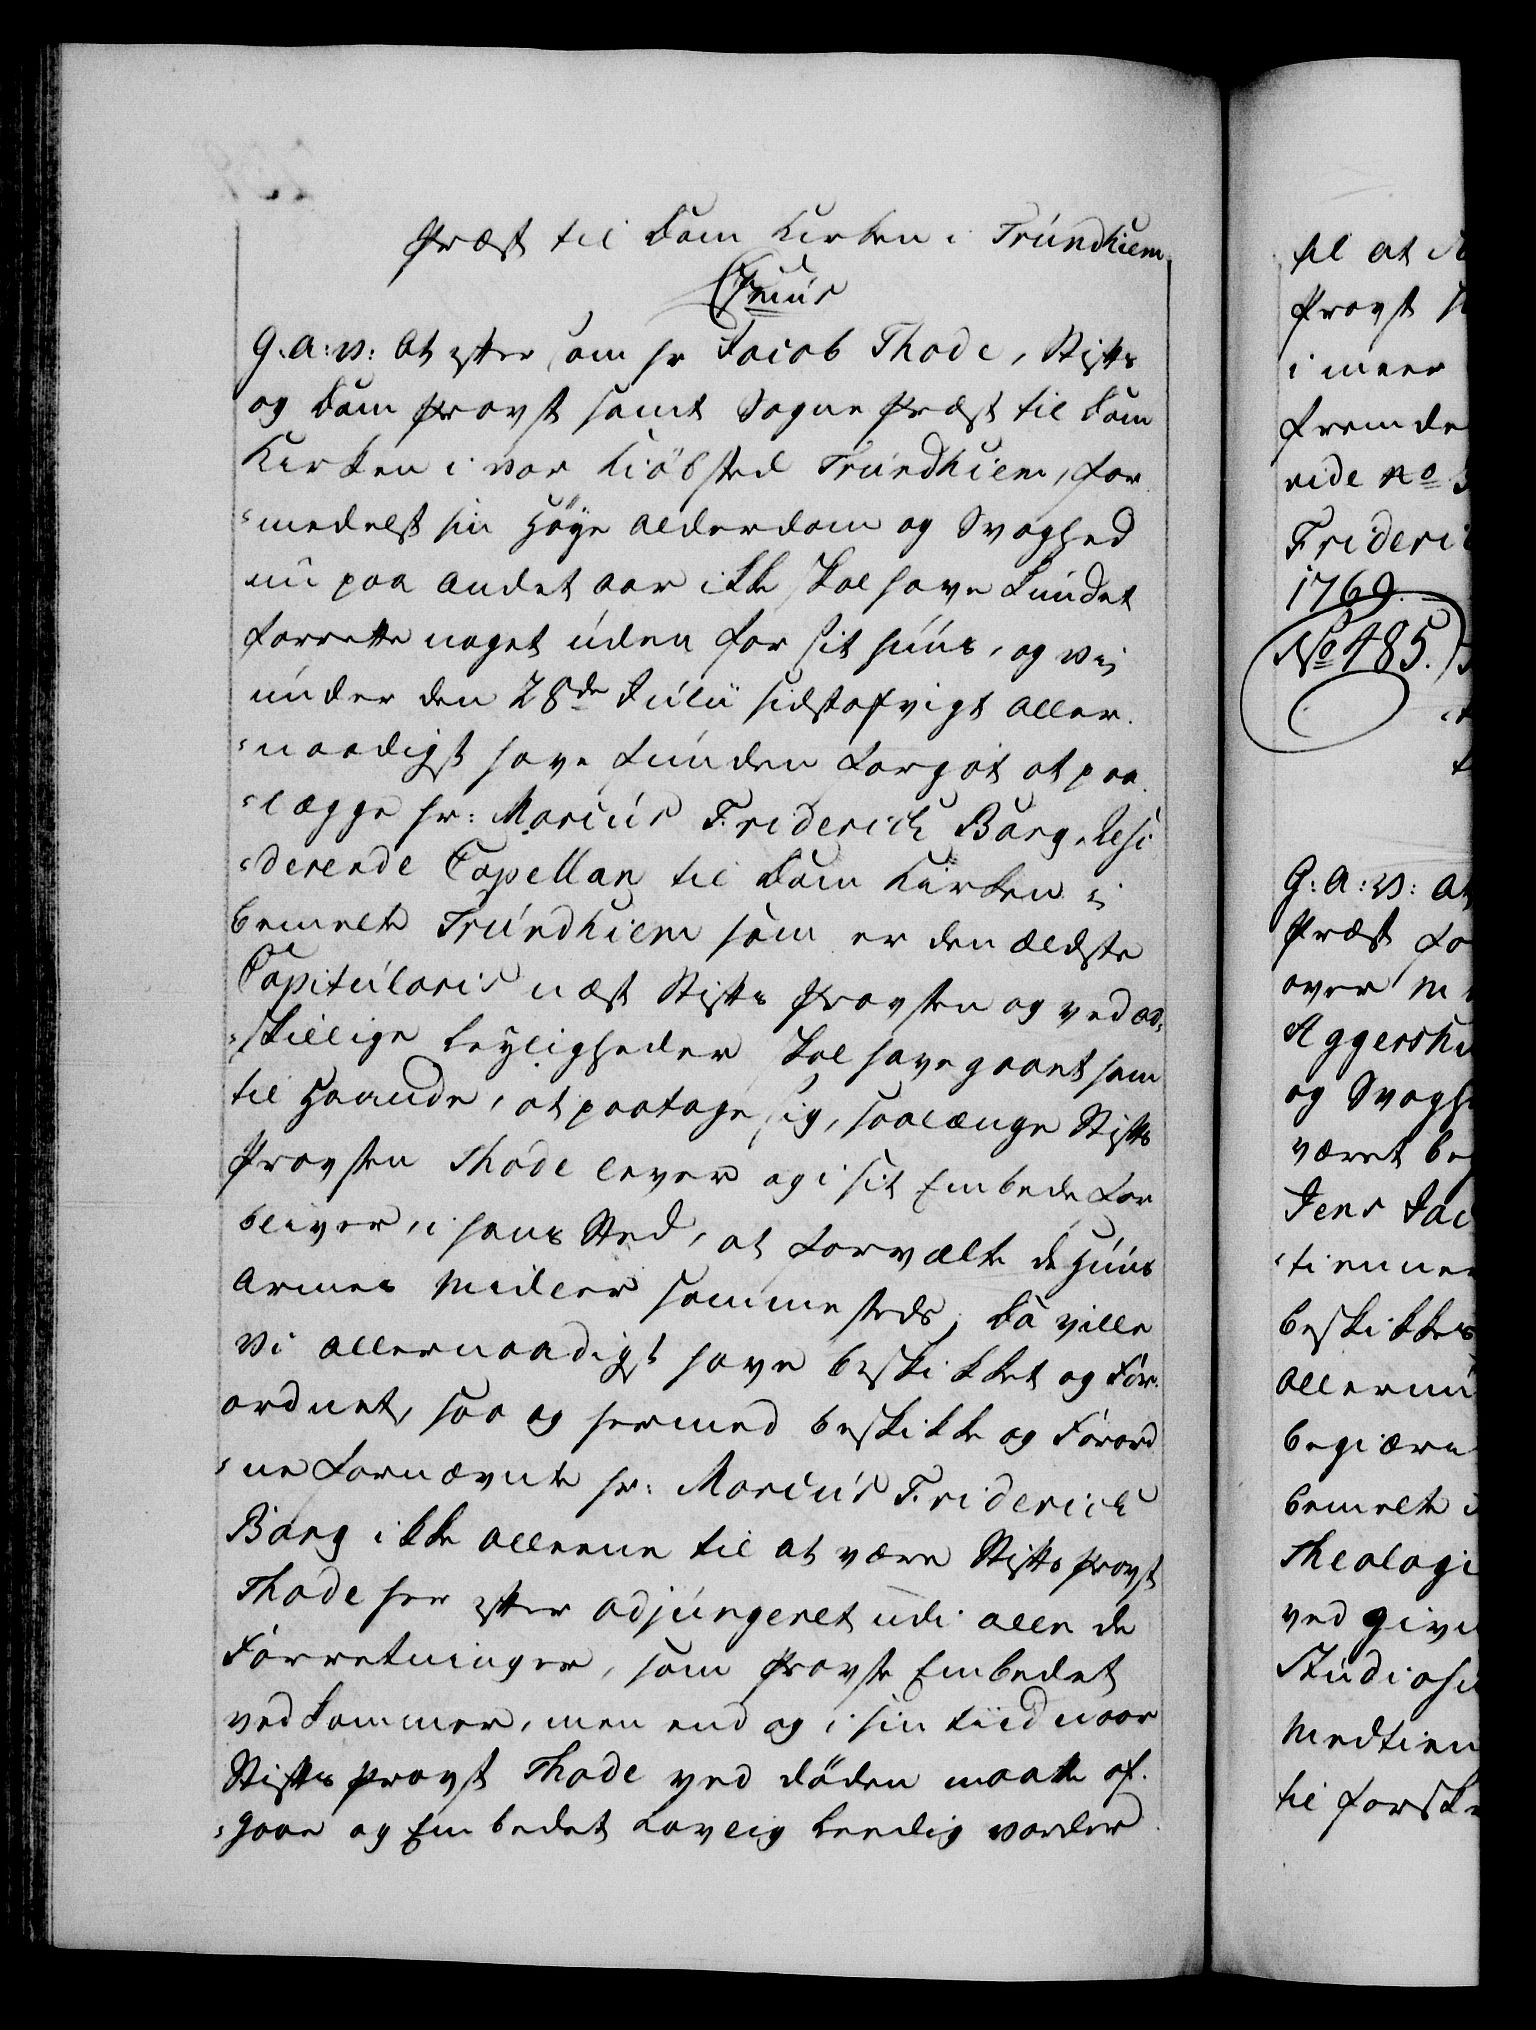 Præst til Dom Kirken i Trundhiem
G: A: V: At efter som hr Jacob Thode, Stifts
og Dom Provst samt Sogne Præst til Dom
Kirken i vor Kiöbsted Trundhiem, for
-medelst sin Höye Alderdom og Svaghed
nu paa andet Aar ikke skal have kundet
forrette noget uden for sit Huus, og Vi
under den 28de Julii sidstafvigt Aller
-naadigst have funden for got at paa
-lægge hr: Marcus Friderich Bang, Resi
-derende Capellan til Dom Kirken i
bemelte Trundhiem som er den ældste
Capitularis næst Stifts Provsten og ved ad
-skillige Leyligheder skal have gaaet ham
til Haande, at paatage sig, saalænge Stifts
Provsten Thode lever og i sit Embede for
bliver, i hans Sted, at forvalte de Huus
Armes Midler sammesteds, Da ville
Vi allernaadigst have beskikket og For
ordnet, saa og hermed beskikke og Forord
-ne fornævnte hr: Marcus Friderich
Bang ikke alleene til at være Stifts Provst
Thode her efter adjungeret udi alle de
Forretninger, som Provste Embedet
vedkommer, men end og i sin tiid naar
Stifts Provst Thode ved döden maatte af
-gaae og Embedet lovlig leedig vorder
til at
Provst
i meer
fremde
vide No
Frideri
1769.
No 485.
G: A: V: At
Præst fo
over M
Aggershu
og Svagh
været be
Jens Jac
-tienne
beskikkes
allernu
begiære
bemelte
Theologi
ved give
Studiosu
Medtien
til forske